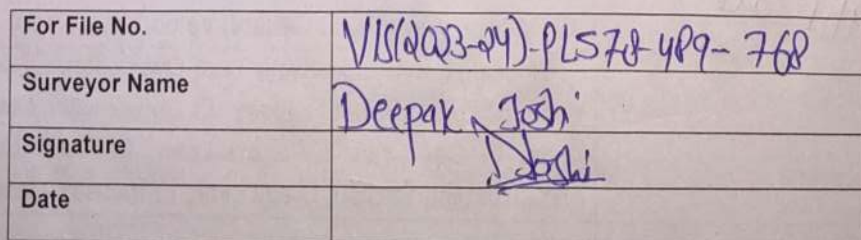 For File No. VIS(2023-24)-PL578-489-768
Surveyor Name Deepak Joshi
Signature DJoshi
Date